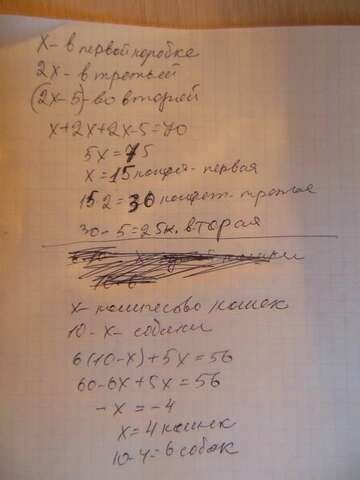 х - в первой коробке
2х - в третьей
(2х-5) - во второй
х+2х+2х-5=70
5х=75
х=15 конфет - первая
15 2=30 конфет - третья
30-5=25к. вторая
х - количесво кошек
10-х - собаки
6(10-х)+5х=56
60-6х+5х=56
-х=-4
х=4 кошек
10-4=6 собак